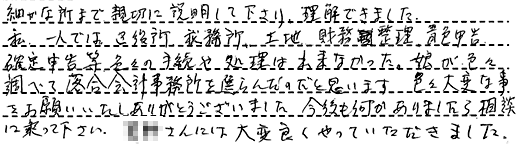 細かな所まで親切に説明して下さり、理解できました。
私一人では区役所、税務所、土地、財務整理、青色申告
確定申告等、色々の手続や処理は出来なかった。娘が色々
調べて落合会計事務所を選らんだのだと思います。色々大変な事
をお願いいたしありがとうございました。今後も何かありましたら相談
に乗って下さい。さんには大変良くやっていただきました。